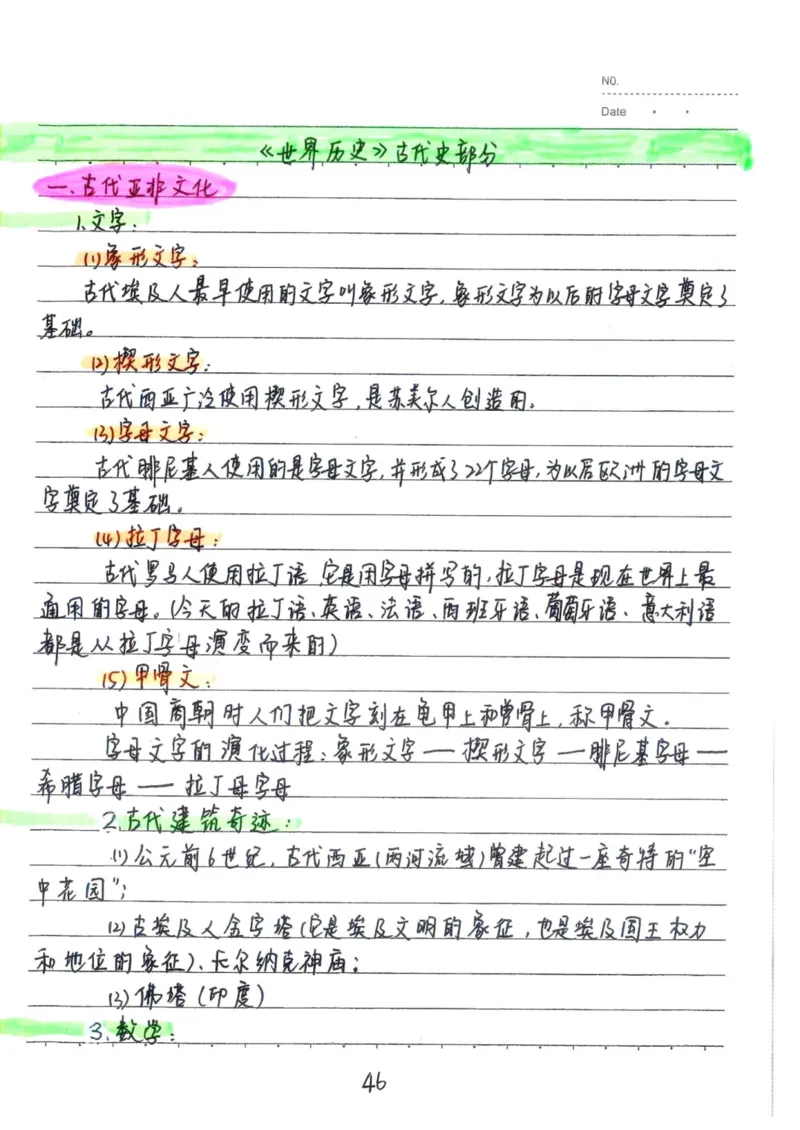 NO.
Date
《世界历史》古代史部分
一、古代亚非文化
1.文字：
(1)象形文字：
古代埃及人最早使用的文字叫象形文字，象形文字为以后的字母文字奠定了
基础。
(2)楔形文字：
古代西亚广泛使用楔形文字，是苏美尔人创造用。
(3)字母文字：
古代腓尼基人使用的是字母文字，并形成了22个字母，为以后欧洲的字母文
字奠定了基础。
(4)拉丁字母：
古代罗马人使用拉丁语，它是用字母拼写的，拉丁字母是现在世界上最
通用的字母。(今天的拉丁语、英语、法语、西班牙语、葡萄牙语、意大利语
都是从拉丁字母演变而来的)
(5)甲骨文：
中国商朝时人们把文字刻在龟甲上和兽骨上，称甲骨文。
字母文字的演化过程：象形文字 — 楔形文字 — 腓尼基字母 —
希腊字母 — 拉丁母字母
2.古代建筑奇迹：
(1)公元前6世纪，古代西亚(两河流域)曾建起过一座奇特的"空
中花园"；
(2)古埃及人金字塔(它是埃及文明的象征，也是埃及国王权力
和地位的象征)、卡尔纳克神庙；
(3)佛塔(印度)
3.数学：
46